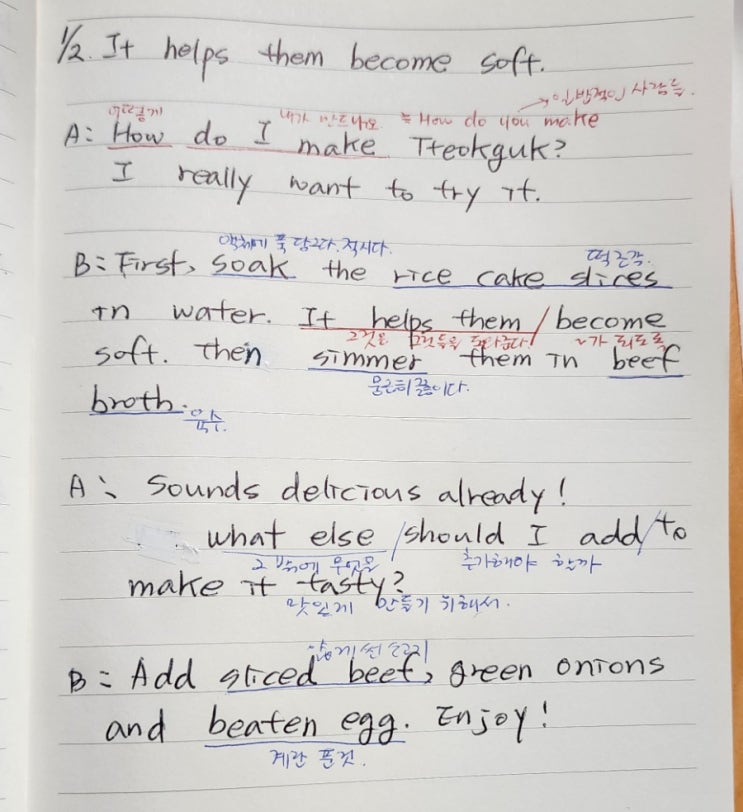 1/2. It helps them become soft.
→ 일반적인 사람들.
어떻게 내가 만드나요 = How do you make
A: How do I make Tteokguk?
I really want to try it.
액체에 푹 담그다. 적시다. 떡 조각.
B: First, soak the rice cake slices
in water. It helps them / become
그것은 그것들을 도와준다 ~가 되도록
soft. Then simmer them in beef
뭉근히 끓이다.
broth. 육수.
A: Sounds delicious already!
what else / should I add / to
그 밖에 무엇을 추가해야 할까
make it tasty?
맛있게 만들기 위해서.
얇게 썬 소고기
B: Add sliced beef, green onions
and beaten egg. Enjoy!
계란 푼것.